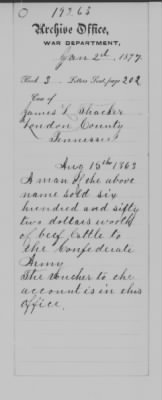 19263
Archive Office,
WAR DEPARTMENT,
Jan 2nd, 1877.
Book 3 Letters Sent, page 202
Case of
James L Thacker
Loudon County
Tennessee
Aug 15th 1863
A man of the above
name sold six
hundred and sixty
two dollars worth
of beef Cattle to
the Confederate
Army
The Voucher to the
account is in this
Office.